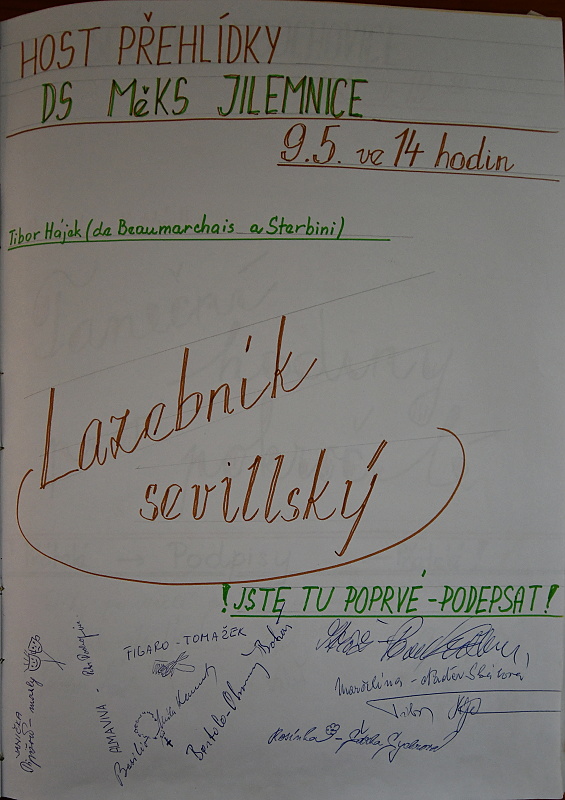 HOST PŘEHLÍDKY
DS MěKS JILEMNICE
9.5. ve 14 hodin
Tibor Hájek (de Beaumarchais a Sterbini)
Lazebník
sevillský
! JSTE TU POPRVÉ - PODEPSAT !
FIGARO - TOMAČEK
ALMAVIVA -
Bartolo -
Marcelina -
Tibor
Rosinka -